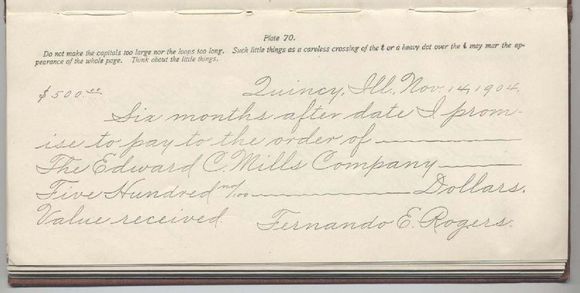 Plate 70.
Do not make the capitals too large nor the loops too long. Such little things as a careless crossing of the t or a heavy dot over the i may mar the ap-
pearance of the whole page. Think about the little things.
$500.00 Quincy, Ill., Nov. 14, 1904.
Six months after date I prom-
ise to pay to the order of
The Edward C. Mills Company
Five Hundred no/100 Dollars.
Value received. Fernando E. Rogers.